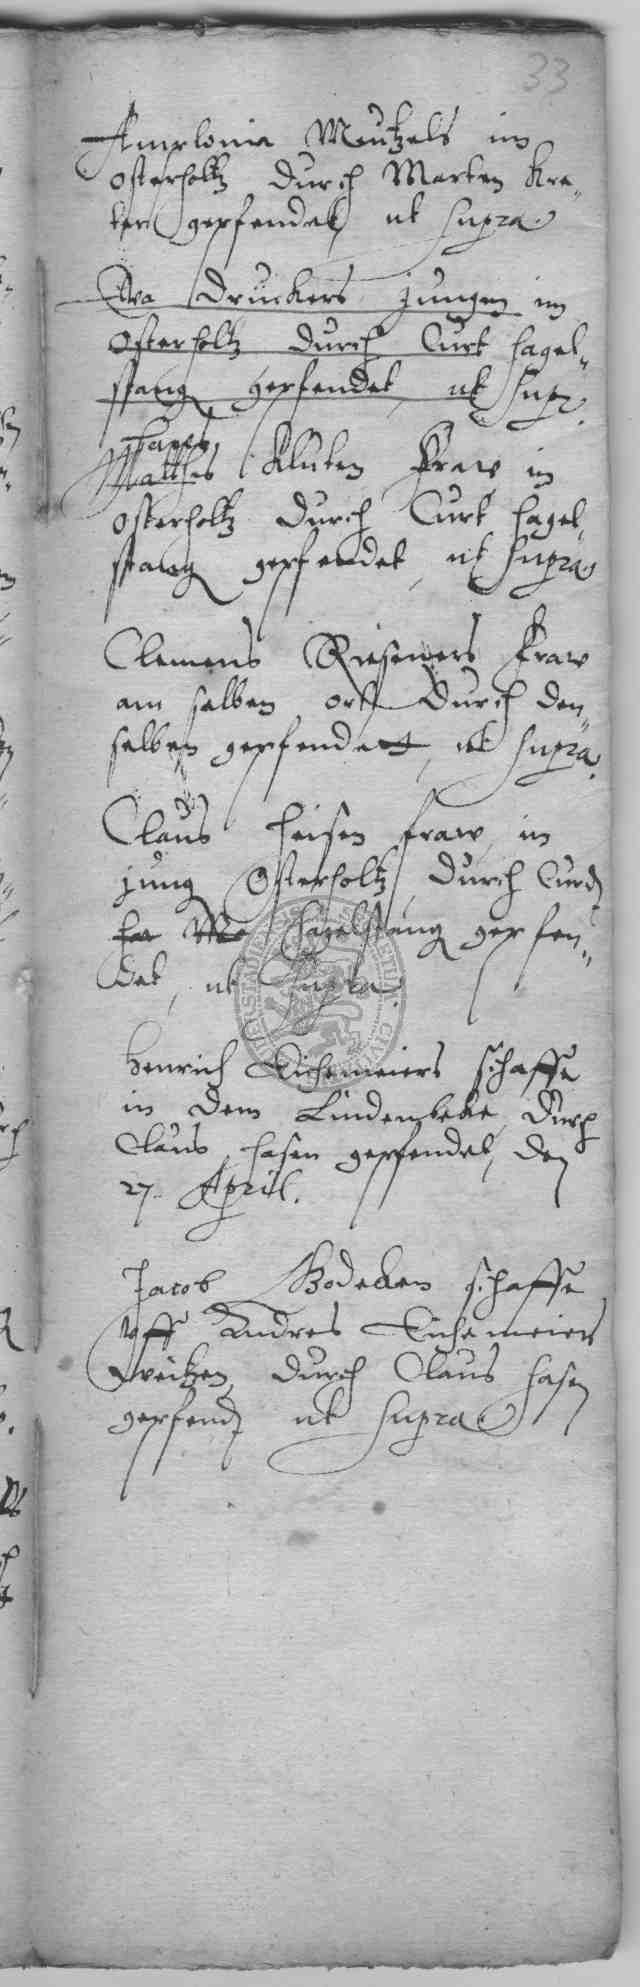 33
Amelonia Meutzels im
Osterholtz durch Marten Kre„
ter gepfendet, ut supra.
Eva Druckers jungen im
Osterholtz durch Curt Hagel„
stang gepfendet, ut supr.
Hans
Matthes Kluken Fraw im
Osterholtz durch Curt Hagel„
stang gepfendet, ut supra
Clemens Rieseners Fraw
am selben ort durch den„
selben gepfendett, ut supra.
Claus Heisen fraw im
jung Osterholtz durch Curdt
Hagelstang gepfen„
det, ut supra
Henrich Eichemeiers schaffe
in dem Lindenbeke durch
Claus Hasen gepfendet, den
27. April.
Jacob Bodeken schaffe
uff Andres Eichemeiers
weitzen durch Claus Hasen
gepfend ut supra